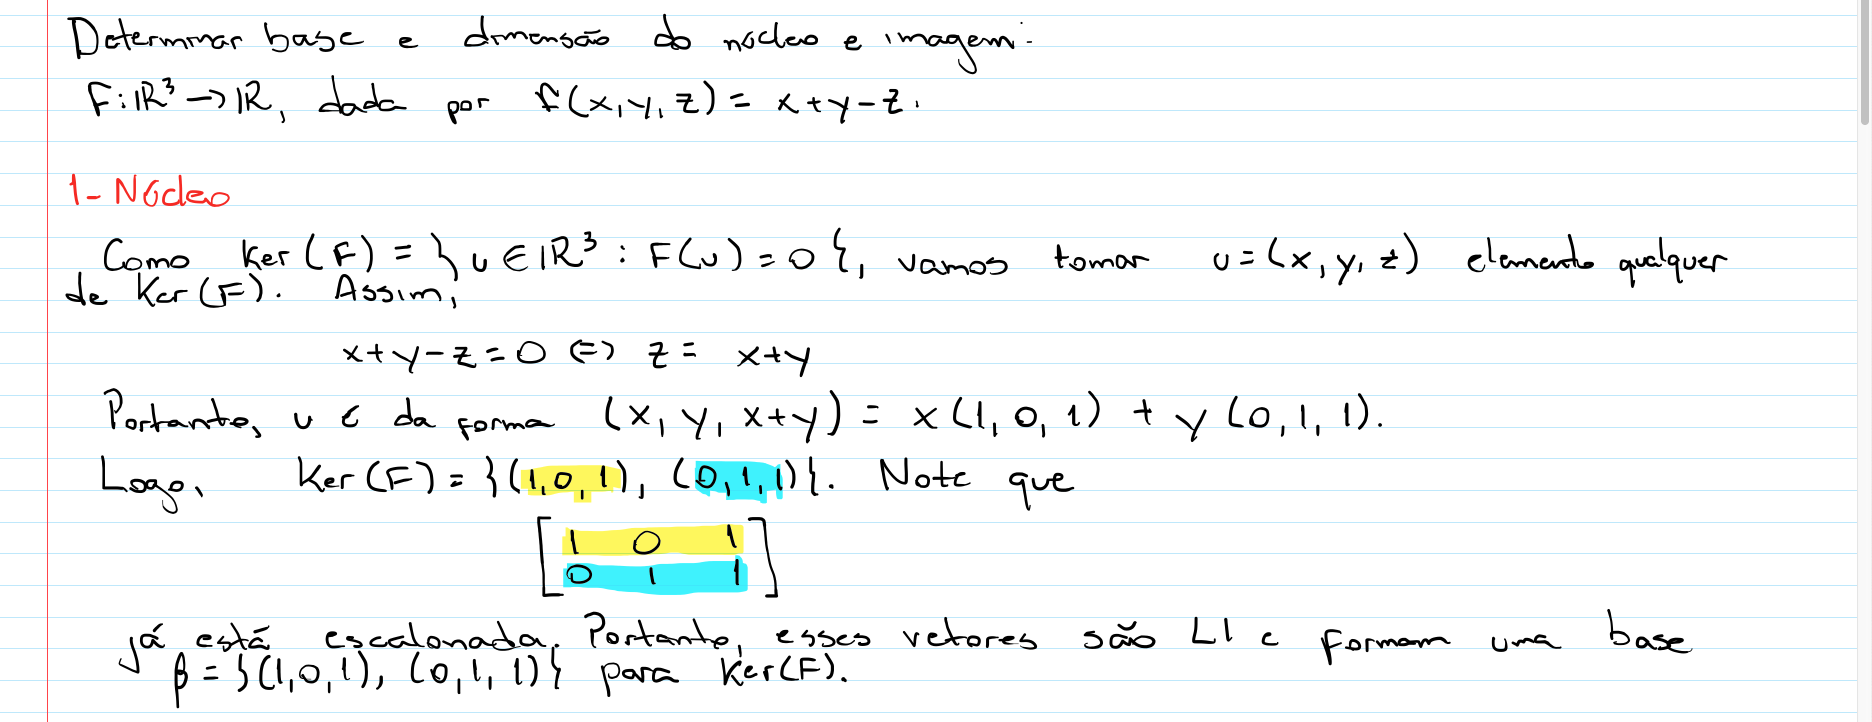 Determinar base e dimensão do núcleo e imagem.
F:ℝ³→ℝ, dada por f(x,y,z) = x+y-z.
1- Núcleo
Como Ker(F) = {u∈ℝ³ : F(u)=0}, vamos tomar u=(x,y,z) elemento qualquer
de Ker(F). Assim,
x+y-z=0 ⇔ z= x+y
Portanto, u é da forma (x,y,x+y) = x(1,0,1) + y(0,1,1).
Logo, Ker(F)={(1,0,1), (0,1,1)}. Note que
[1 0 1
0 1 1]
já está escalonada. Portanto, esses vetores são LI e formam uma base
β={(1,0,1), (0,1,1)} para Ker(F).